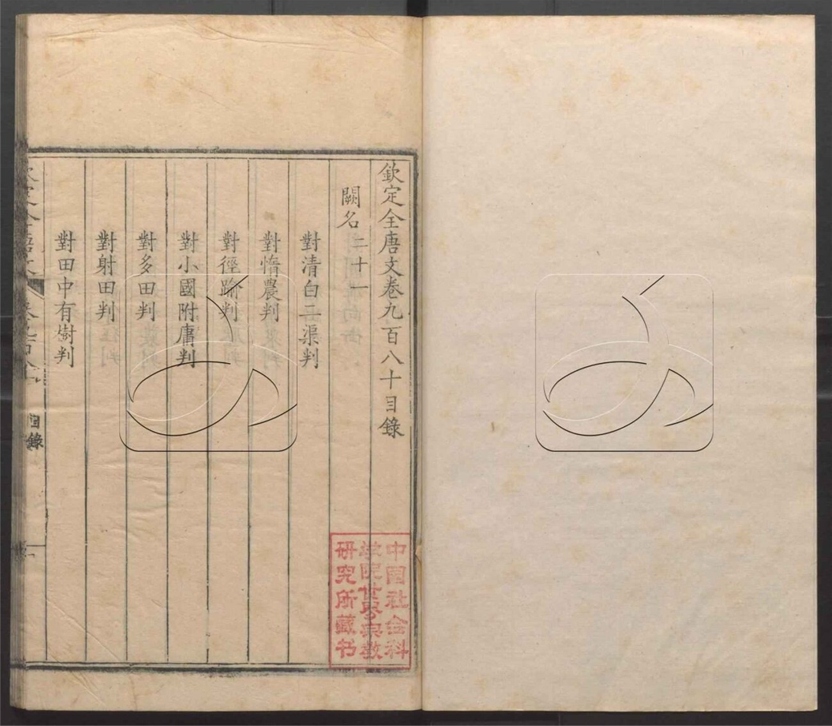 欽定全唐文卷九百八十目錄
闕名二十一
對清白二渠判
對惰農判
對徑踰判
對小國附庸判
對多田判
對射田判
對田中有樹判
目錄
中国社会科
学院世界宗教
研究所藏书